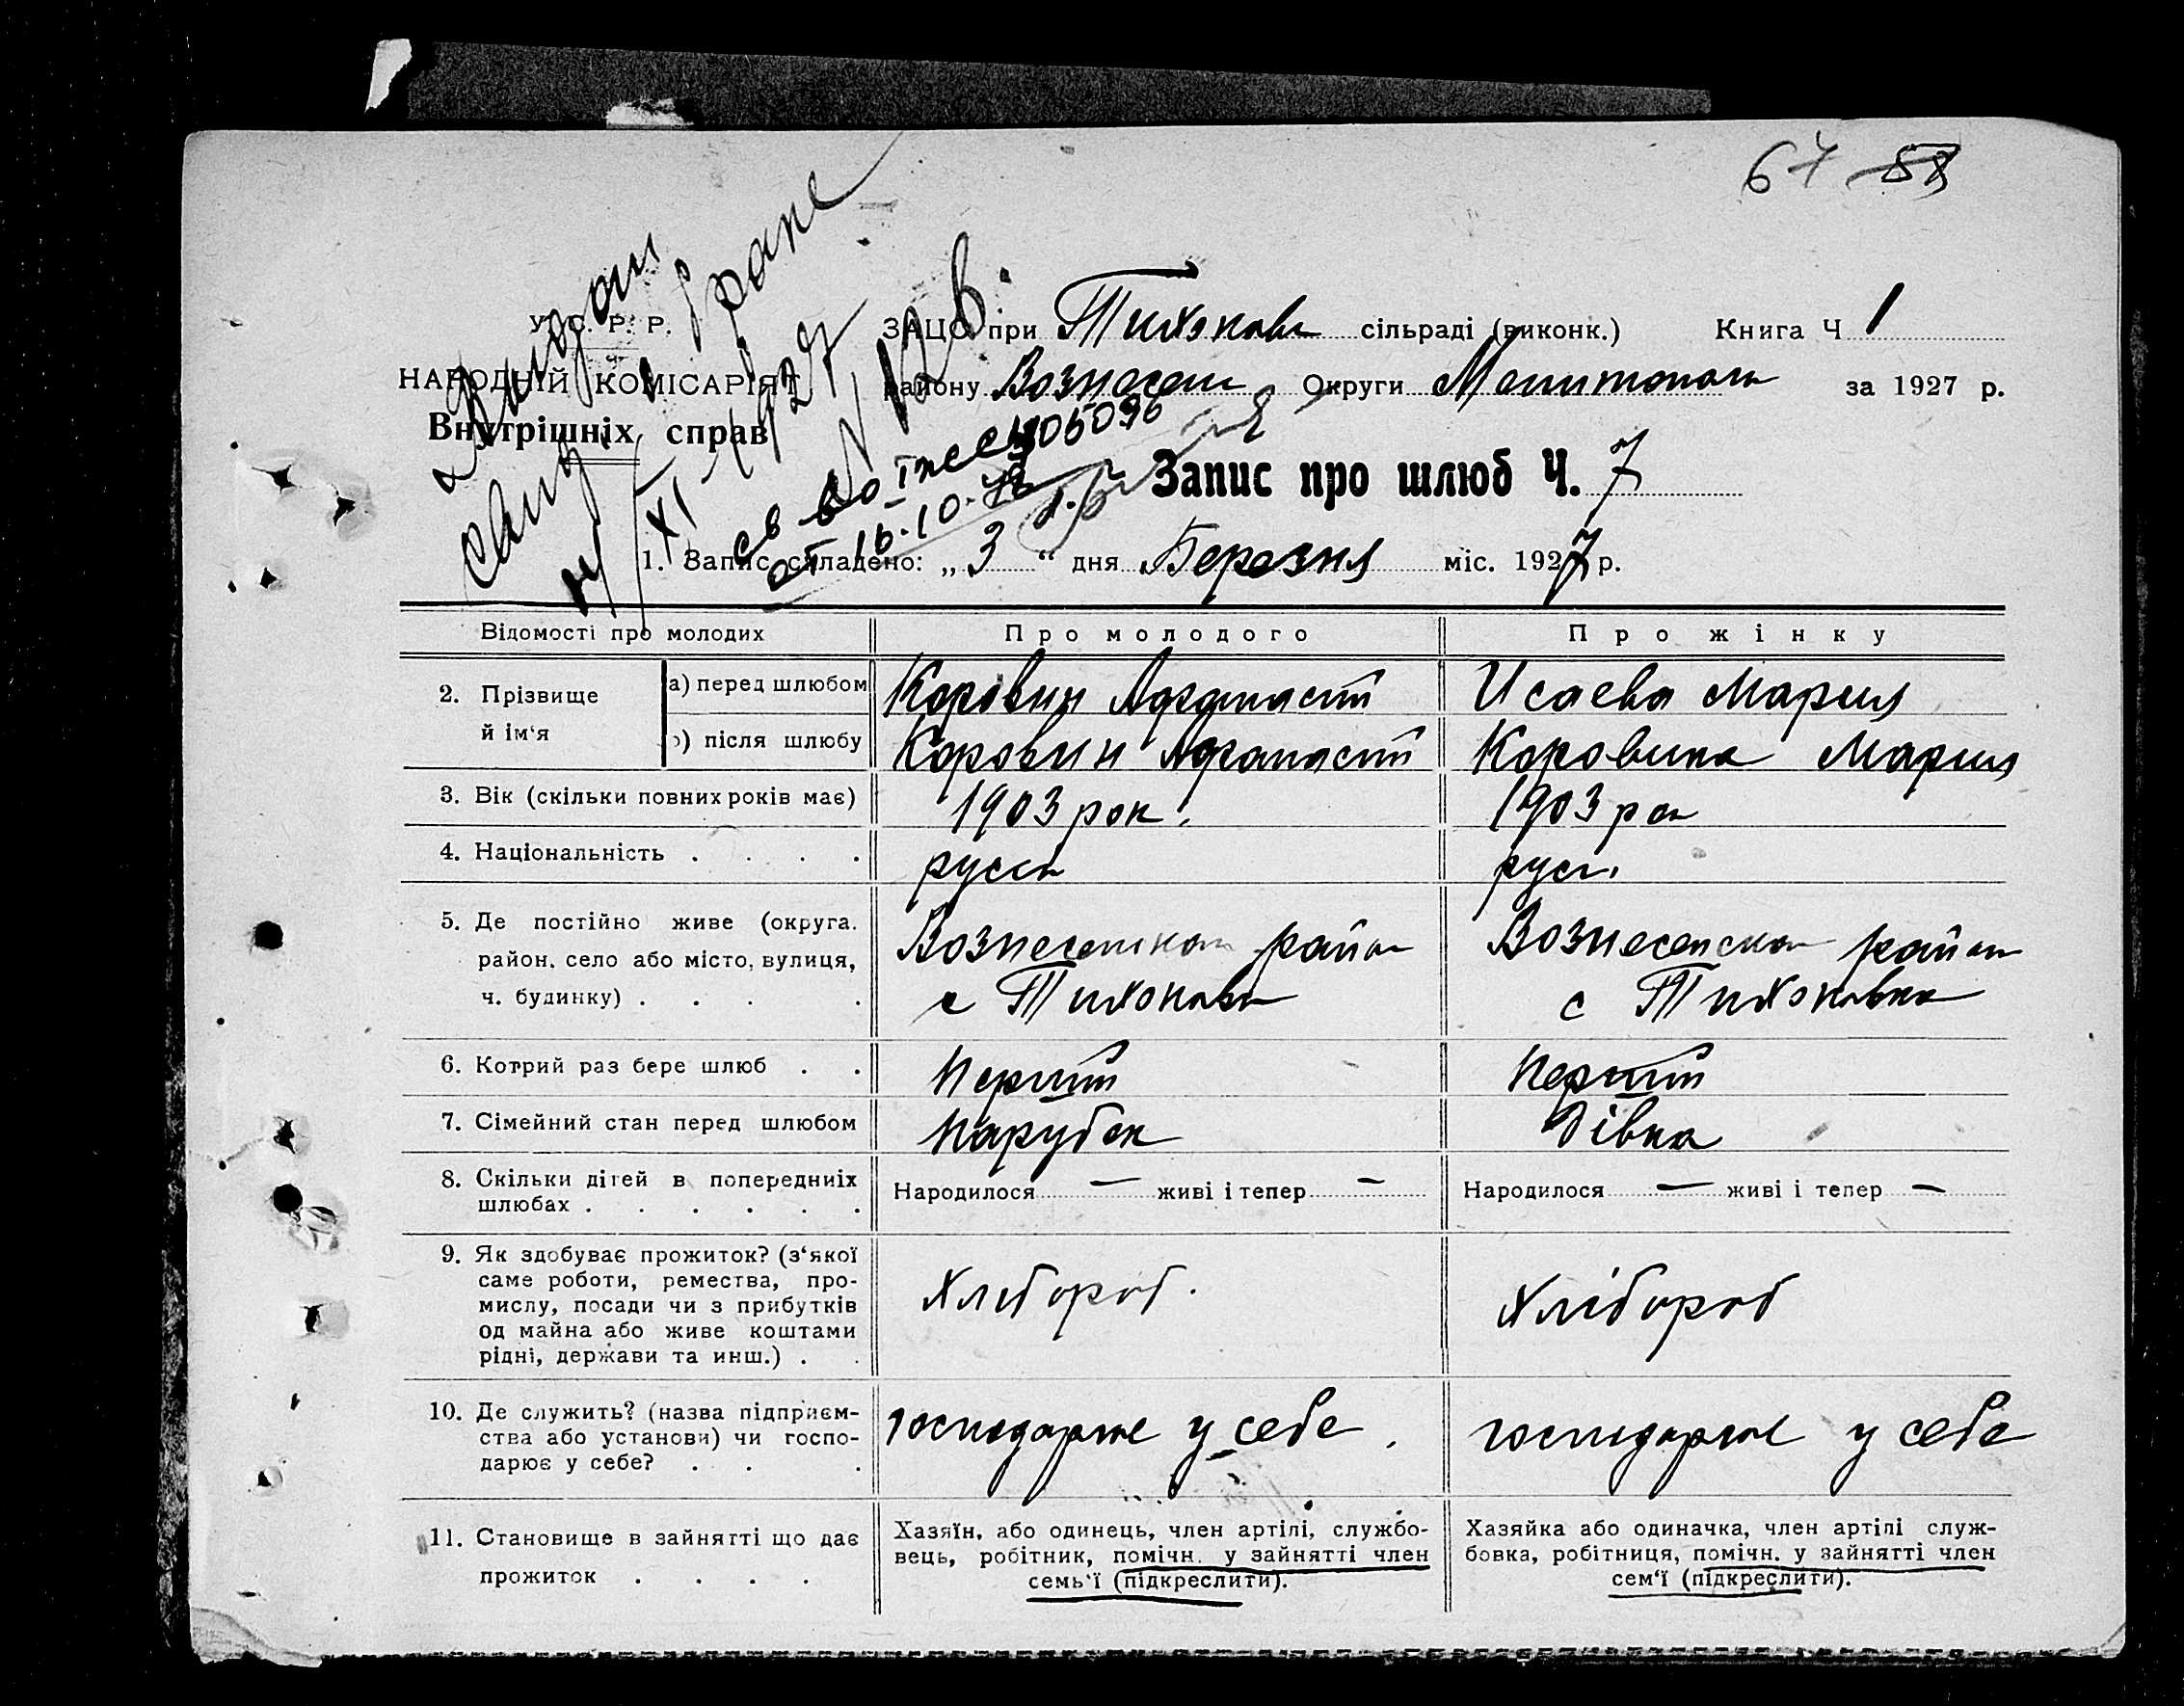 67 58
У. С. Р. Р.
НАРОДНІЙ КОМІСАРІЯТ
Внутрішніх справ
ЗАЦС при Тихоновк сільраді (виконк.) Книга Ч 1
району Вознесен Округи Мелитополь за 1927 р.
Выдан
1927
N 126
от 16-10-
Запис про шлюб Ч. 7
1. Запис складено: „3“ дня Березня міс. 1927 р.
Відомості про молодих Про молодого Про жінку
2. Прізвище й ім‘я
а) перед шлюбом Коровин Афанасій Исаева Мария
б) після шлюбу Коровин Афанасій Коровина Мария
3. Вік (скільки повних років має) 1903 рок. 1903 рок
4. Національність . . . . русск русск.
5. Де постійно живе (округа. район, село або місто, вулиця, ч. будинку) . . . .
Вознесенском район
с Тихоновк
Вознесенском район
с Тихоновка
6. Котрий раз бере шлюб . . Перший Перший
7. Сімейний стан перед шлюбом Парубок Дівка
8. Скільки дітей в попередніх шлюбах . . . . . .
Народилося — живі і тепер — Народилося — живі і тепер —
9. Як здобуває прожиток? (з‘якої
саме роботи, ремества, про-
мислу, посади чи з прибутків
од майна або живе коштами
рідні, держави та инш.) . .
Хлібороб. Хлібороб
10. Де служить? (назва підприєм-
ства або установи) чи госпо-
дарює у себе? . . .
господарює у себе. господарює у себе
11. Становище в зайнятті що дає
прожиток . . . .
Хазяїн, або одинець, член артілі, службо-
вець, робітник, помічн. у зайнятті член
семь‘ї (підкреслити).
Хазяйка або одиначка, член артілі служ-
бовка, робітниця, помічн. у зайнятті член
сем‘ї (підкреслити).